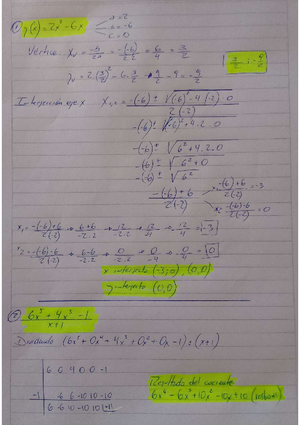 ① y(x)=2x²-6x
a=2
b=-6
c=0
Vértice: Xv = -b/2a = -(-6)/2.2 = 6/4 = 3/2
yv = 2.(3/2)² - 6.3/2 = 9/2 - 9 = -9/2
3/2 ; -9/2
Intersección eje x X₁,₂ = -(-6) ± √(-6)² - 4.(2).0
2(-2)
-(-6) ± √(-6)² + 4.2.0
-(-6) ± √6² + 4.2.0
-(-6) ± √6² + 0
-(-6) ± √6²
-(-6) ± 6
2(-2)
-(-6)+6/2(-2) = -3
x₂ -(-6)-6/2(-2) = 0
x₁ = -(-6)+6/2(-2) → 6+6/-2.2 → 12/-2.2 → 12/-4 → 12/4 = -3
x₂ = -(-6)-6/2(-2) → 6-6/-2.2 → 0/-2.2 → 0/-4 → 0/4 = 0
x intersecto (-3;0), (0,0)
y intersecto (0,0)
② 6x⁵+4x³-1
x+1
Dividendo (6x⁵+0x⁴+4x³+0x²+0x-1):(x+1)
6 0 4 0 0 -1
-1 -6 6 -10 10 -10
6 -6 10 -10 10 -11
Resultado del cociente
6x⁴-6x³+10x²-10x+10